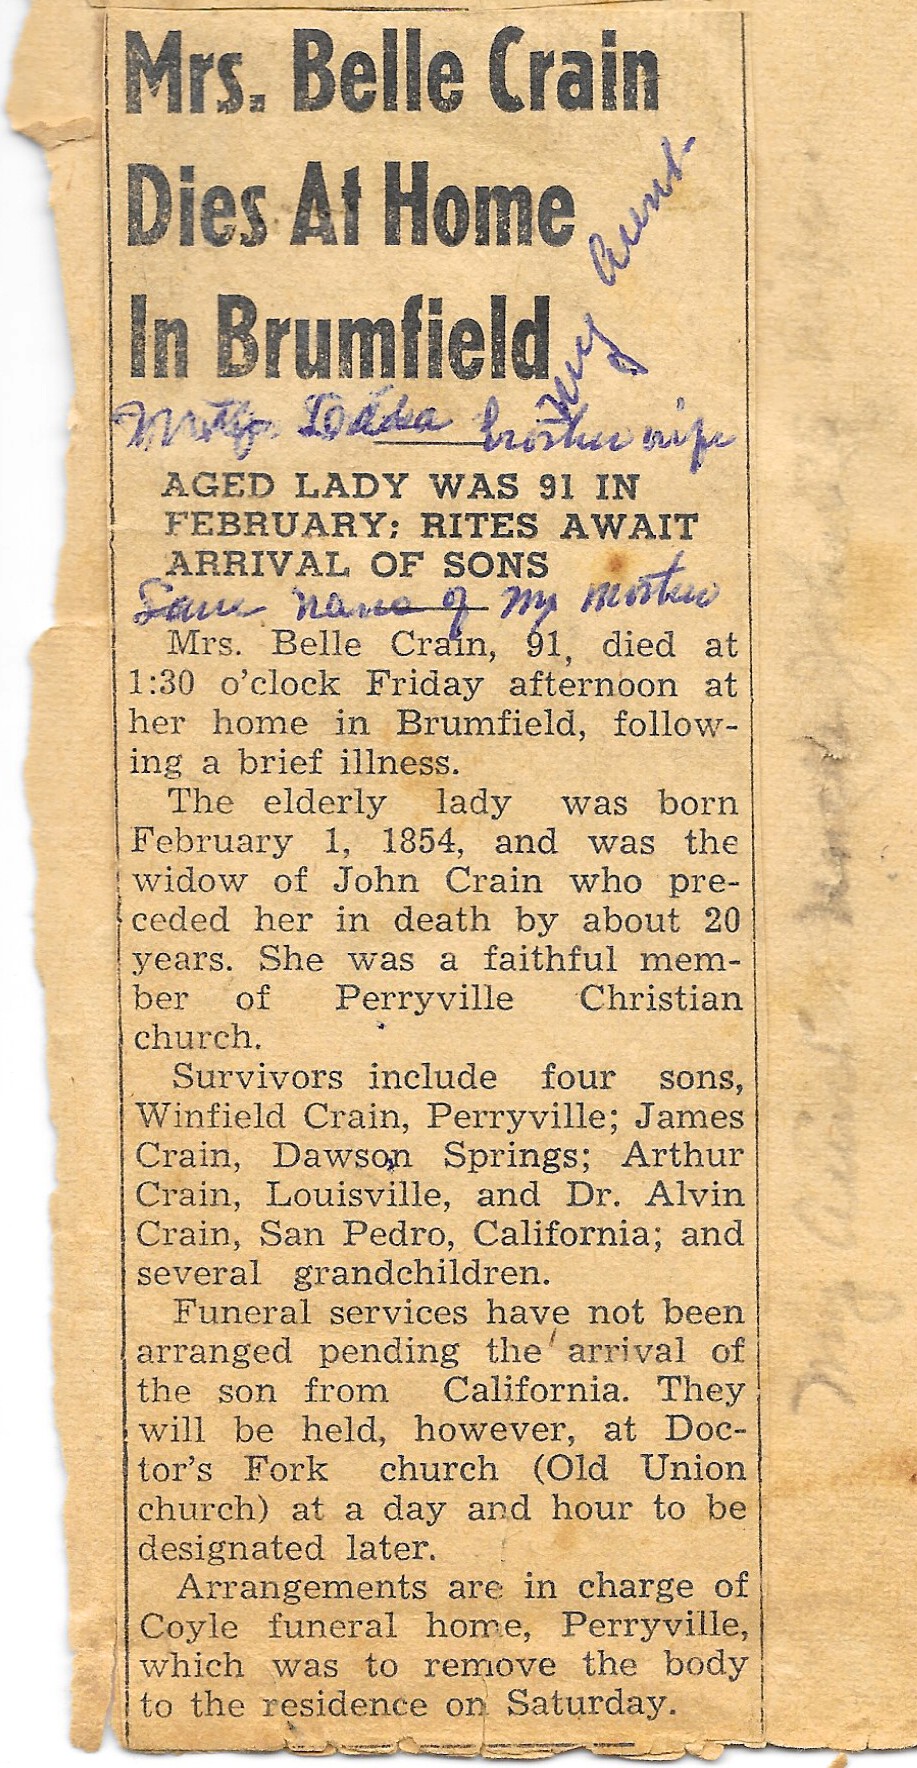 Mrs. Belle Crain
Dies At Home
In Brumfield
my Aunt-
brother wife
AGED LADY WAS 91 IN
FEBRUARY; RITES AWAIT
ARRIVAL OF SONS
Same name of my mother
Mrs. Belle Crain, 91, died at
1:30 o'clock Friday afternoon at
her home in Brumfield, follow-
ing a brief illness.
The elderly lady was born
February 1, 1854, and was the
widow of John Crain who pre-
ceded her in death by about 20
years. She was a faithful mem-
ber of Perryville Christian
church.
Survivors include four sons,
Winfield Crain, Perryville; James
Crain, Dawson Springs; Arthur
Crain, Louisville, and Dr. Alvin
Crain, San Pedro, California; and
several grandchildren.
Funeral services have not been
arranged pending the arrival of
the son from California. They
will be held, however, at Doc-
tor's Fork church (Old Union
church) at a day and hour to be
designated later.
Arrangements are in charge of
Coyle funeral home, Perryville,
which was to remove the body
to the residence on Saturday.
My Aunt